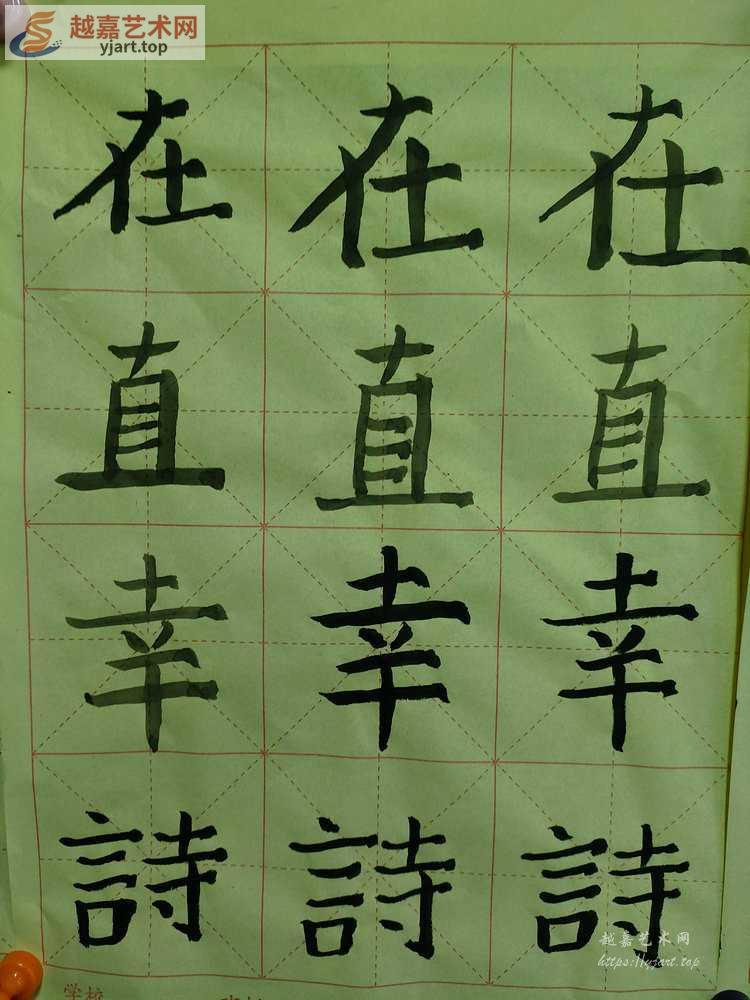 越嘉艺术网
yjart.top
在在在
直直直
幸幸幸
詩詩詩
越嘉艺术网
https://yjart.top
学校